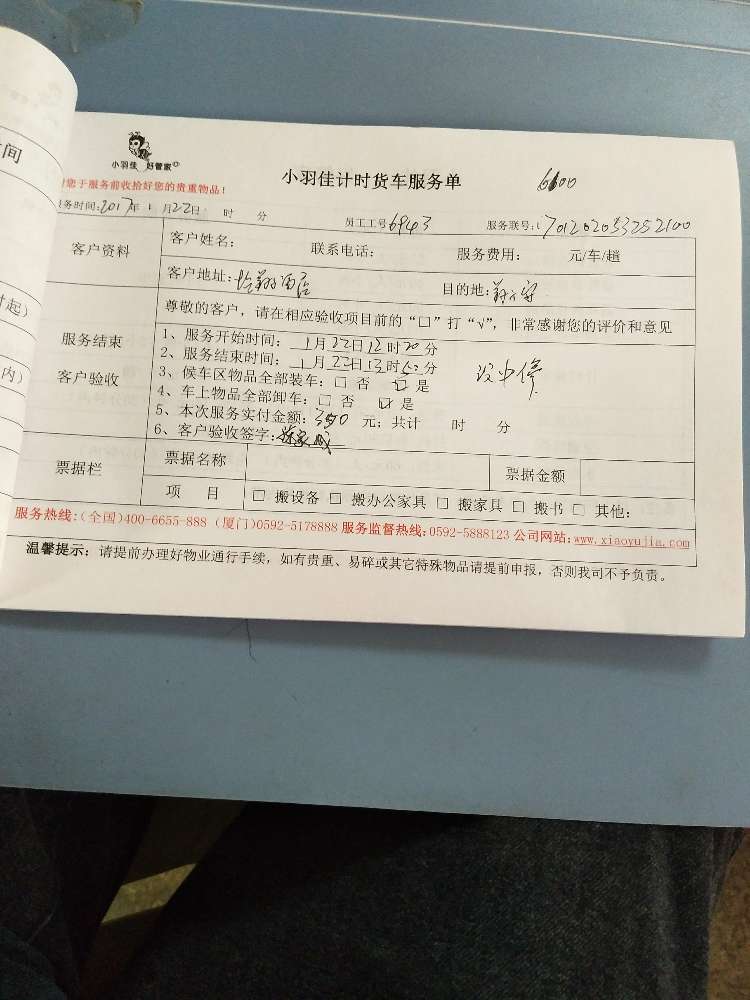 间
时起)
内)
小羽佳 好管家
小羽佳计时货车服务单
6600
您于服务前收拾好您的贵重物品！
务时间：2017年1月22日 时 分 员工工号6943 服务联号：
客户资料
客户姓名： 联系电话： 服务费用： 元/车/趟
客户地址： 翔酒店 目的地：
服务结束
客户验收
尊敬的客户，请在相应验收项目前的“□”打“√”，非常感谢您的评价和意见
1、服务开始时间：1月22日12时20分
2、服务结束时间：1月22日13时50分
3、候车区物品全部装车：□ 否 ☑ 是
4、车上物品全部卸车：□ 否 ☑ 是
没中停
5、本次服务实付金额：350元；共计 时 分
6、客户验收签字：
票据栏
票据名称 票据金额
项 目 □ 搬设备 □ 搬办公家具 □ 搬家具 □ 搬书 □ 其他：
服务热线：(全国)400-6655-888 (厦门)0592-5178888 服务监督热线：0592-5888123 公司网站：www.xiaoyujia.com
温馨提示：请提前办理好物业通行手续，如有贵重、易碎或其它特殊物品请提前申报，否则我司不予负责。